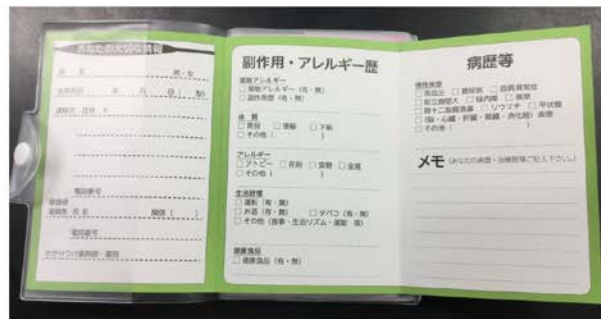 あなたの大切な情報
男・女
生年月日 年 月 日( 歳)
連絡先 住所 〒
電話番号
緊急時
連絡先 氏名 関係( )
電話番号
かかりつけ薬剤師・薬局
副作用・アレルギー歴
薬物アレルギー
□ 薬物アレルギー(有・無)
□ 副作用歴(有・無)
体 質
□ 胃弱 □ 便秘 □ 下痢
□ その他( )
アレルギー
□ アトピー □ 花粉 □ 食物 □ 金属
□ その他( )
生活習慣
□ 運転(有・無)
□ お酒(有・無) □ タバコ(有・無)
□ その他(食事・生活リズム・運動 等)
健康食品
□ 健康食品(有・無)
病歴等
慢性疾患
□ 高血圧 □ 糖尿病 □ 脂質異常症
□ 前立腺肥大 □ 緑内障 □ 喘息
□ 胃十二指腸潰瘍 □ リウマチ □ 甲状腺
□ (脳・心臓・肝臓・腎臓・消化器)疾患
□ その他( )
メモ(あなたの病歴・治療歴等ご記入下さい。)